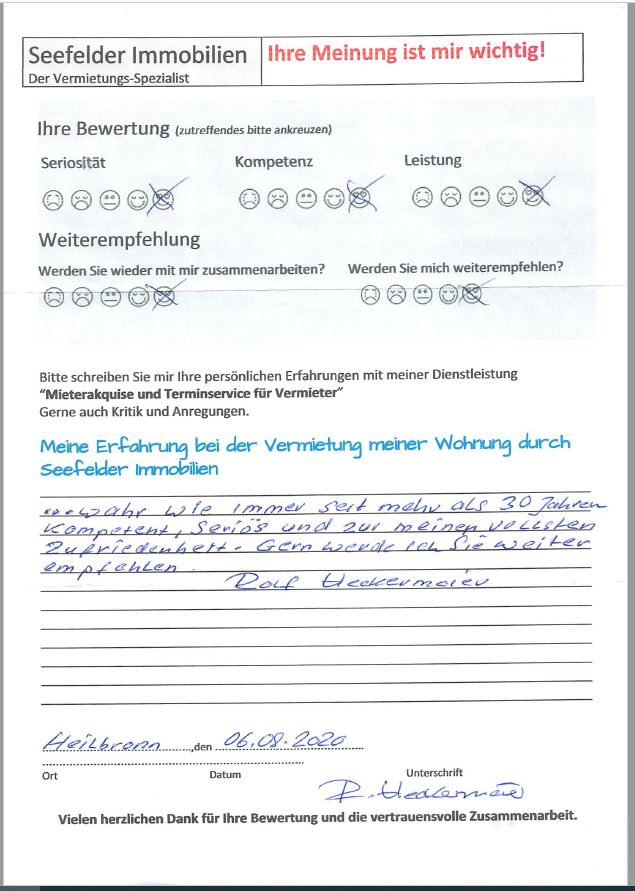 Seefelder Immobilien
Der Vermietungs-Spezialist
Ihre Meinung ist mir wichtig!
Ihre Bewertung (zutreffendes bitte ankreuzen)
Seriosität Kompetenz Leistung
Weiterempfehlung
Werden Sie wieder mit mir zusammenarbeiten? Werden Sie mich weiterempfehlen?
Bitte schreiben Sie mir Ihre persönlichen Erfahrungen mit meiner Dienstleistung
"Mieterakquise und Terminservice für Vermieter"
Gerne auch Kritik und Anregungen.
Meine Erfahrung bei der Vermietung meiner Wohnung durch
Seefelder Immobilien
...wahr wie immer seit mehr als 30 Jahren
Kompetent, Seriös und zur meinen vollsten
Zufriedenheit. Gern werde ich Sie weiter
empfehlen.
Rolf Heckermaier
Heilbronn ,den 06.08.2020
Ort Datum Unterschrift
R. Heckermaier
Vielen herzlichen Dank für Ihre Bewertung und die vertrauensvolle Zusammenarbeit.